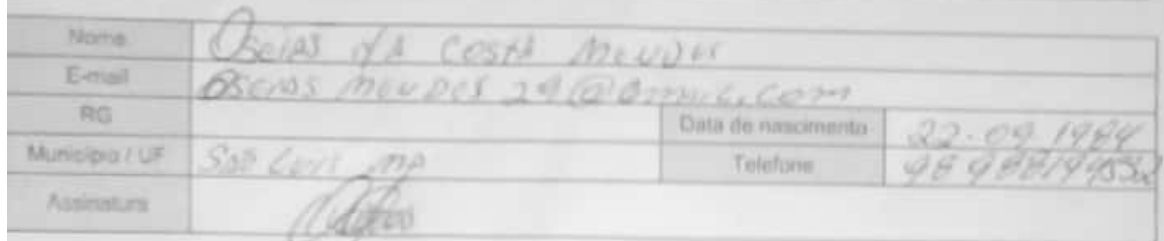 Nome Oseias dA Costa Mendes
E-mail OSeias Mendes 29@Gmail.com
RG
Data de nascimento 22-09-1984
Município / UF São Luis MA
Telefone
Assinatura